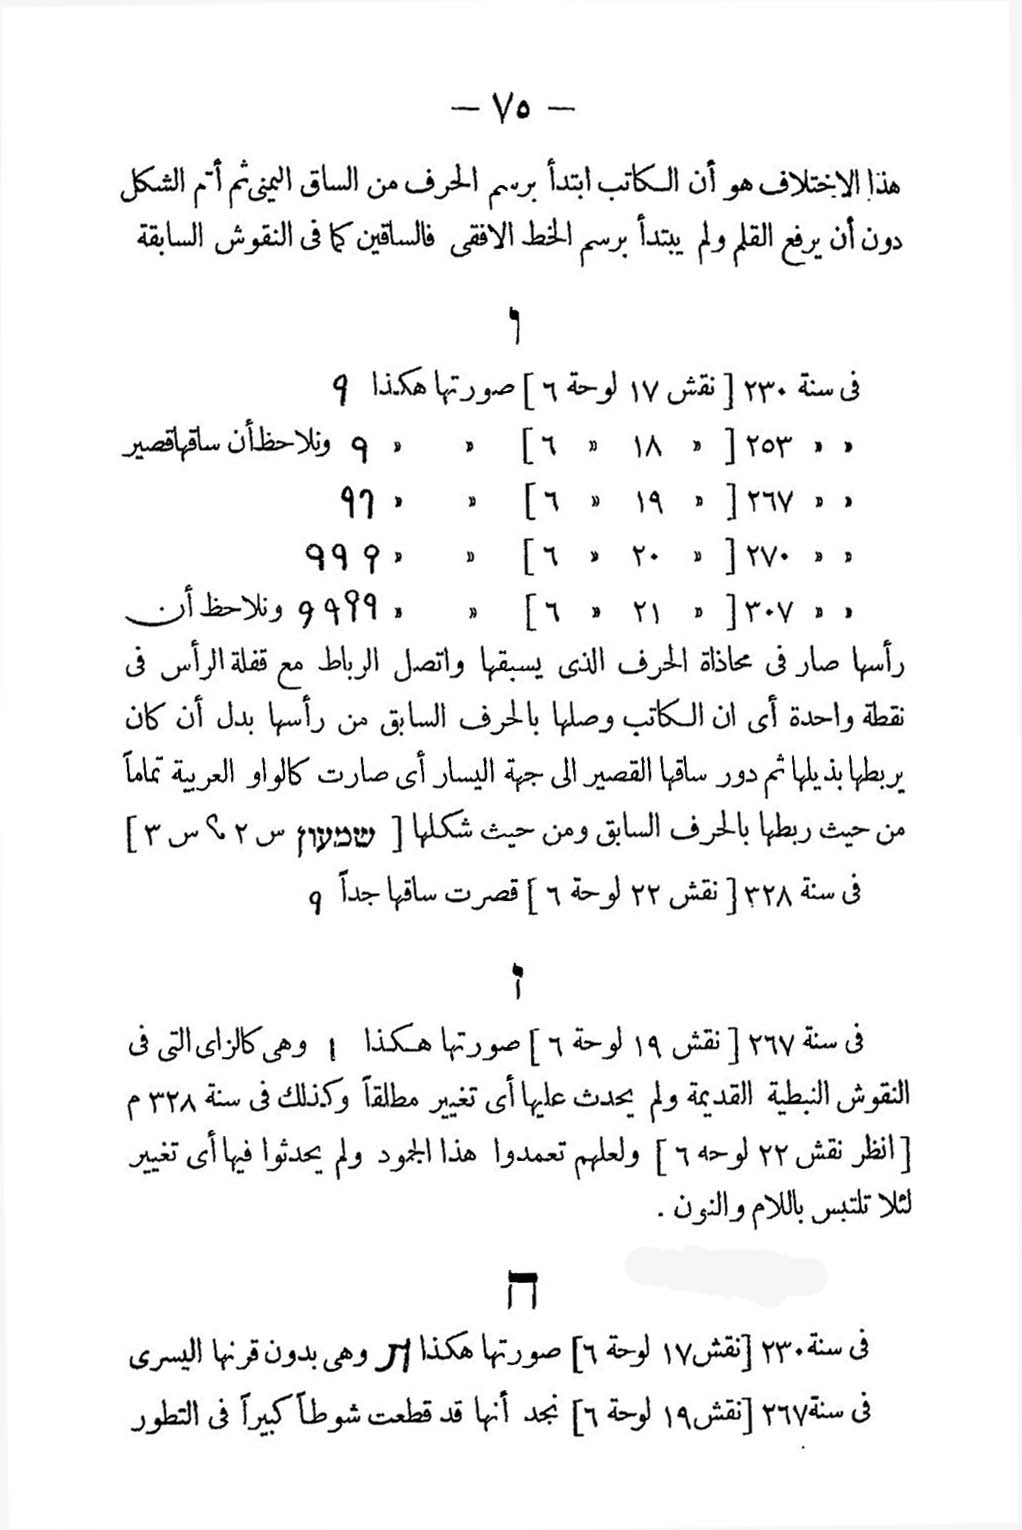 — ٧٥ —
هذا الاختلاف هو أن الكاتب ابتدأ برسم الحرف من الساق اليمنى ثم أتم الشكل
دون أن يرفع القلم ولم يبتدأ برسم الخط الافقى فالساقين كما فى النقوش السابقة
ו
فى سنة ٢٣٠ [ نقش ١٧ لوحة ٦ ] صورتها هكذا
» » ٢٥٣ [ » ١٨ » ٦ ] » » ونلاحظ أن ساقها قصير
» » ٢٦٧ [ » ١٩ » ٦ ] » »
» » ٢٧٠ [ » ٢٠ » ٦ ] » »
» » ٣٠٧ [ » ٢١ » ٦ ] » » ونلاحظ أن
رأسها صار فى محاذاة الحرف الذى يسبقها واتصل الرباط مع قفلة الرأس فى
نقطة واحدة أى ان الكاتب وصلها بالحرف السابق من رأسها بدل أن كان
يربطها بذيلها ثم دور ساقها القصير الى جهة اليسار أى صارت كالواو العربية تماماً
من حيث ربطها بالحرف السابق ومن حيث شكلها [ שמעון س ٢ ، س ٣ ]
فى سنة ٣٢٨ [ نقش ٢٢ لوحة ٦ ] قصرت ساقها جداً
ז
فى سنة ٢٦٧ [ نقش ١٩ لوحة ٦ ] صورتها هكذا وهى كالزاى التى فى
النقوش النبطية القديمة ولم يحدث عليها أى تغيير مطلقاً وكذلك فى سنة ٣٢٨ م
[ انظر نقش ٢٢ لوحه ٦ ] ولعلهم تعمدوا هذا الجمود ولم يحدثوا فيها أى تغيير
لئلا تلتبس باللام والنون .
ח
فى سنة ٢٣٠ [ نقش ١٧ لوحة ٦ ] صورتها هكذا وهى بدون قرنها اليسرى
فى سنة ٢٦٧ [ نقش ١٩ لوحة ٦ ] نجد أنها قد قطعت شوطاً كبيراً فى التطور